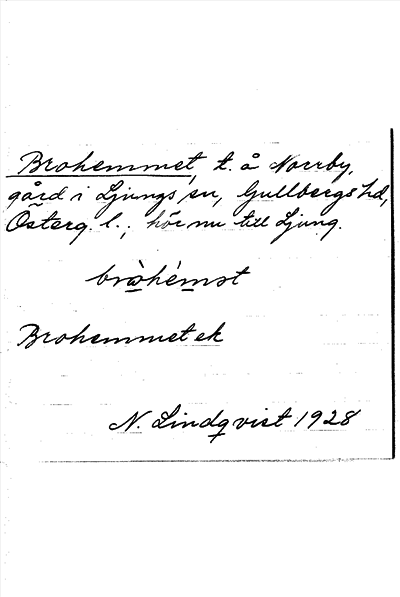 Brohemmet, t. å Norrby,
gård i Ljungs sn, Gullbergs hd,
Österg. l.; hör nu till Ljung.
bro̱hem̱ət
Brohemmet ek
N. Lindqvist 1928